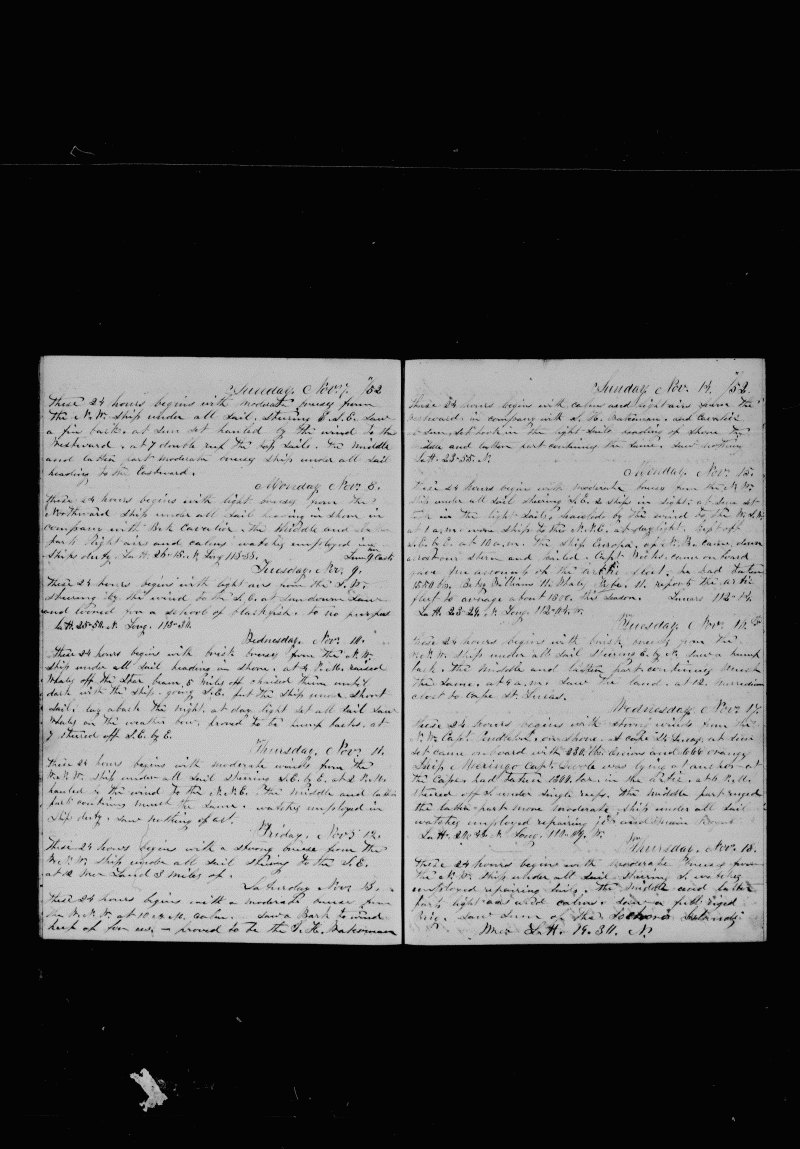 Sunday, Nov. 7. /52
These 24 hours begins with moderate breeses from
the N.W. Ship under all sail, steering E.S.E. Saw
a fin back, at sun set hauled by the wind to the
Westward, at 7 double reef the top sails. The Middle
and latter part moderate breeses Ship under all sail
heading to the Eastward.
Monday Nov. 8.
These 24 hours begins with light breeses from the
Northward Ship under all sail heading in shore in
company with Bark Cavalier. the Middle and latter
part light airs and calms watches employed in
Ships duty. Latt. 25-15. N. Long 113-33.
Tuesday, Nov. 9.
These 24 hours begins with light airs from the S.W.
steering by the wind to the S.E. at sundown saw
and lowed for a school of blackfish. to no purpas
Latt. 25-50. N. Long. 113-30.
Wednesday, Nov. 10.
These 24 hours begins with brisk breeses from the N.W.
Ship under all sail heading in shore. at 2 P.M. raised
Whales off the Star beam, 5 miles off chaised them untill
dark with the Ship. going S.E. put the Ship under short
sail. lay aback the night. at day light set all sail saw
Whales on the weather bow, proved to be hump backs. at
7 steered off S.E. by E.
Thursday, Nov. 11.
These 24 hours begins with moderate winds from the
W.N.W. Ship under all sail steering S.E. by E. at 2 P.M.
hauled to the wind to the N.N.E. the Middle and latter
part continues much the same. watches employed in
Ship duty. Saw nothing
Friday, Nov. 12.
These 24 hours begins with a strong breese from the
W.N.W. Ship under all sail steering to the S.E.
at 12 Mer Land 3 miles of.
Saturday Nov. 13.
These 24 hours begins with a moderate breese from
the W.N.W. at 10 A.M. Calm. Saw a Bark to wind
keep of for us, proved to be the S. H. Waterman
Sunday, Nov. 14. /52
These 24 hours begins with calm and light airs from the
Westward. in company with S. H. Waterman, and Cavalier
at sun set took in the light sails heading of shore the
Middle and latter part continues the same. Saw nothing
Latt. 23-55. N.
Monday, Nov. 15.
These 24 hours begins with moderate breeses from the N.W.
Ship under all sail steering S.E. 2 Ships in sight, at sun set
took in the light sails, hauled by the wind to the W.S.W.
at 1 a.m. wore Ship to the N.N.E. at daylight kept off
S.E. by E. at 10 a.m. the Ship Europa, of came down
across our stern and hailed. Capt came on board
gave me account of the Arctic fleet. he had taken
11 Whales reports the Arctic
fleet to average about 1000. this season. Lunars 112-14.
Latt. 23-24. N. Long. 112-44. W.
Tuesday, Nov. 16.
These 24 hours begins with brisk breeses from the
W.N.W. Ship under all sail steering E. by N. saw a hump
back. the Middle and latter part continues much
the same. at 9 a.m. saw the land. at 12. Meridian
close to Cape St. Lucas.
Wednesday, Nov. 17.
These 24 hours begins with strong winds from the
N.W. Capt. Pendleton, on shore. at cape St. Lucas, at sun
set came on board with and oranges
Ship Meringo Capt. was lying at anchor at
the Cape had taken bar. in the Artic. at 6 P.M.
steered off S under single reefs. the Middle part ruged
the latter part more moderate, Ship under all sail
watches employed repairing
Latt. N. Long. W.
Thursday, Nov. 18.
These 24 hours begins with moderate breeses from
the N.W. Ship under all sail. Steering S. watches
employed repairing sails, the Middle and latter
part light airs and calms. Saw a full riged
Brig. Saw Sum of the Islands
Mer Latt. 19-34. N.